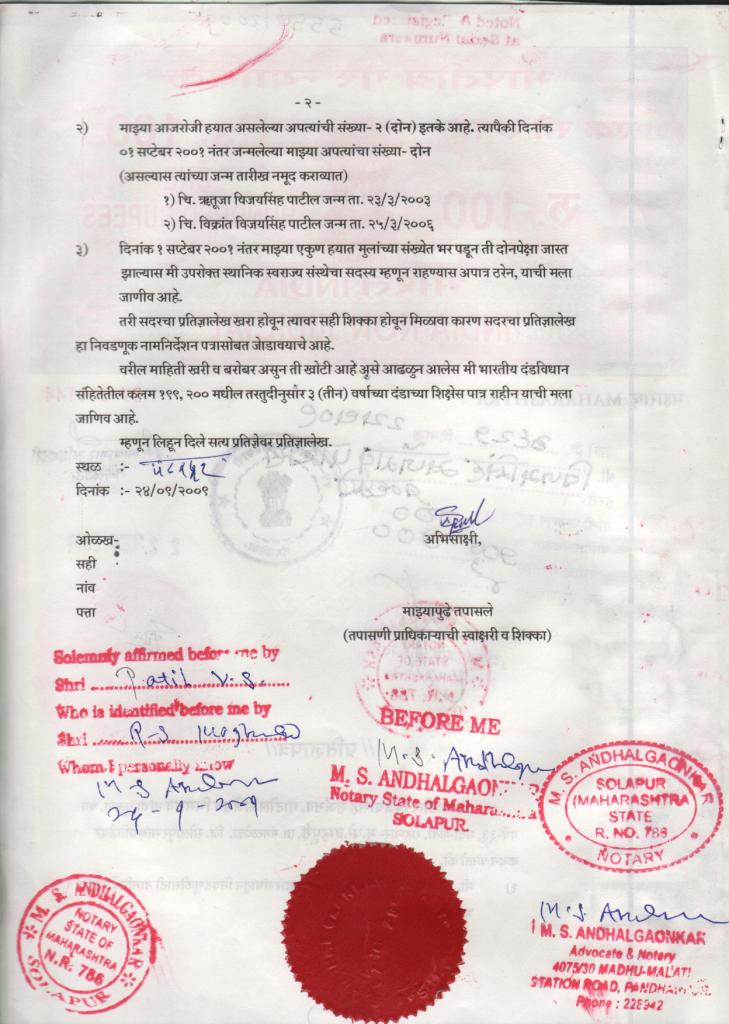 Noted & Registered
at Serial Number
- २ -
२) माझ्या आजरोजी हयात असलेल्या अपत्यांची संख्या- २ (दोन) इतके आहे. त्यापैकी दिनांक
०१ सप्टेबर २००१ नंतर जन्मलेल्या माझ्या अपत्यांचा संख्या- दोन
(असल्यास त्यांच्या जन्म तारीख नमूद कराव्यात)
१) चि. ऋतूजा विजयसिंह पाटील जन्म ता. २३/३/२००३
२) चि. विक्रांत विजयसिंह पाटील जन्म ता. २५/३/२००६
३) दिनांक १ सप्टेबर २००१ नंतर माझ्या एकुण हयात मुलांच्या संख्येत भर पडून ती दोनपेक्षा जास्त
झाल्यास मी उपरोक्त स्थानिक स्वराज्य संस्थेचा सदस्य म्हणून राहण्यास अपात्र ठरेन, याची मला
जाणीव आहे.
तरी सदरचा प्रतिज्ञालेख खरा होवून त्यावर सही शिक्का होवून मिळावा कारण सदरचा प्रतिज्ञालेख
हा निवडणूक नामनिर्देशन पत्रासोबत जोडावयाचे आहे.
वरील माहिती खरी व बरोबर असुन ती खोटी आहे असे आढळुन आलेस मी भारतीय दंडविधान
संहितेतील कलम १९९, २०० मधील तरतुदीनुसार ३ (तीन) वर्षाच्या दंडाच्या शिक्षेस पात्र राहीन याची मला
जाणिव आहे.
म्हणून लिहून दिले सत्य प्रतिज्ञेवर प्रतिज्ञालेख.
स्थळ :- पंढरपूर
दिनांक :- २४/०९/२००९
ओळख:-
सही
नांव
पत्ता
अभिसाक्षी,
माझ्यापुढे तपासले
(तपासणी प्राधिकाऱ्याची स्वाक्षरी व शिक्का)
Solemnly affirmed before me by
Shri Patil V. S.
Who is identified before me by
Shri R-S
Whom I personally know
BEFORE ME
M. S. ANDHALGAONKAR
Notary State of Maharashtra
SOLAPUR.
M. S. ANDHALGAONKAR
SOLAPUR
(MAHARASHTRA
STATE
R. NO. 786
NOTARY
M. S. ANDHALGAONKAR
NOTARY
STATE OF
MAHARASHTRA
N.R. 786
SOLAPUR
M. S. ANDHALGAONKAR
Advocate & Notary
4075/30 MADHU-MALATI
STATION ROAD, PANDHARPUR.
Phone : 228942